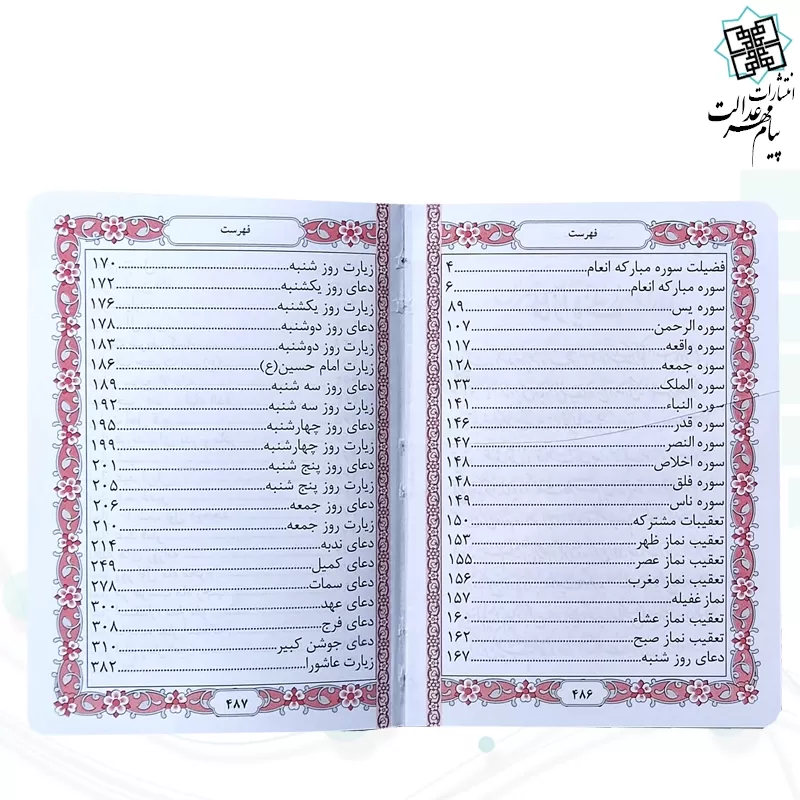 انتشارات
پیام مهر عدالت
فهرست
فضیلت سوره مبارکه انعام........................۴
سوره مبارکه انعام........................۶
سوره یس........................۸۹
سوره الرحمن........................۱۰۷
سوره واقعه........................۱۱۷
سوره جمعه........................۱۲۸
سوره الملک........................۱۳۳
سوره النباء........................۱۴۱
سوره قدر........................۱۴۶
سوره النصر........................۱۴۷
سوره اخلاص........................۱۴۸
سوره فلق........................۱۴۸
سوره ناس........................۱۴۹
تعقیبات مشترکه........................۱۵۰
تعقیب نماز ظهر........................۱۵۳
تعقیب نماز عصر........................۱۵۵
تعقیب نماز مغرب........................۱۵۶
نماز غفیله........................۱۵۷
تعقیب نماز عشاء........................۱۶۰
تعقیب نماز صبح........................۱۶۲
دعای روز شنبه........................۱۶۷
۴۸۶
فهرست
زیارت روز شنبه........................۱۷۰
دعای روز یکشنبه........................۱۷۲
زیارت روز یکشنبه........................۱۷۶
دعای روز دوشنبه........................۱۷۸
زیارت روز دوشنبه........................۱۸۳
زیارت امام حسین(ع)........................۱۸۶
دعای روز سه شنبه........................۱۸۹
زیارت روز سه شنبه........................۱۹۲
دعای روز چهارشنبه........................۱۹۵
زیارت روز چهارشنبه........................۱۹۹
دعای روز پنج شنبه........................۲۰۱
زیارت روز پنج شنبه........................۲۰۵
دعای روز جمعه........................۲۰۶
زیارت روز جمعه........................۲۱۰
دعای ندبه........................۲۱۴
دعای کمیل........................۲۴۹
دعای سمات........................۲۷۸
دعای عهد........................۳۰۰
دعای فرج........................۳۰۸
دعای جوشن کبیر........................۳۱۰
زیارت عاشورا........................۳۸۲
۴۸۷